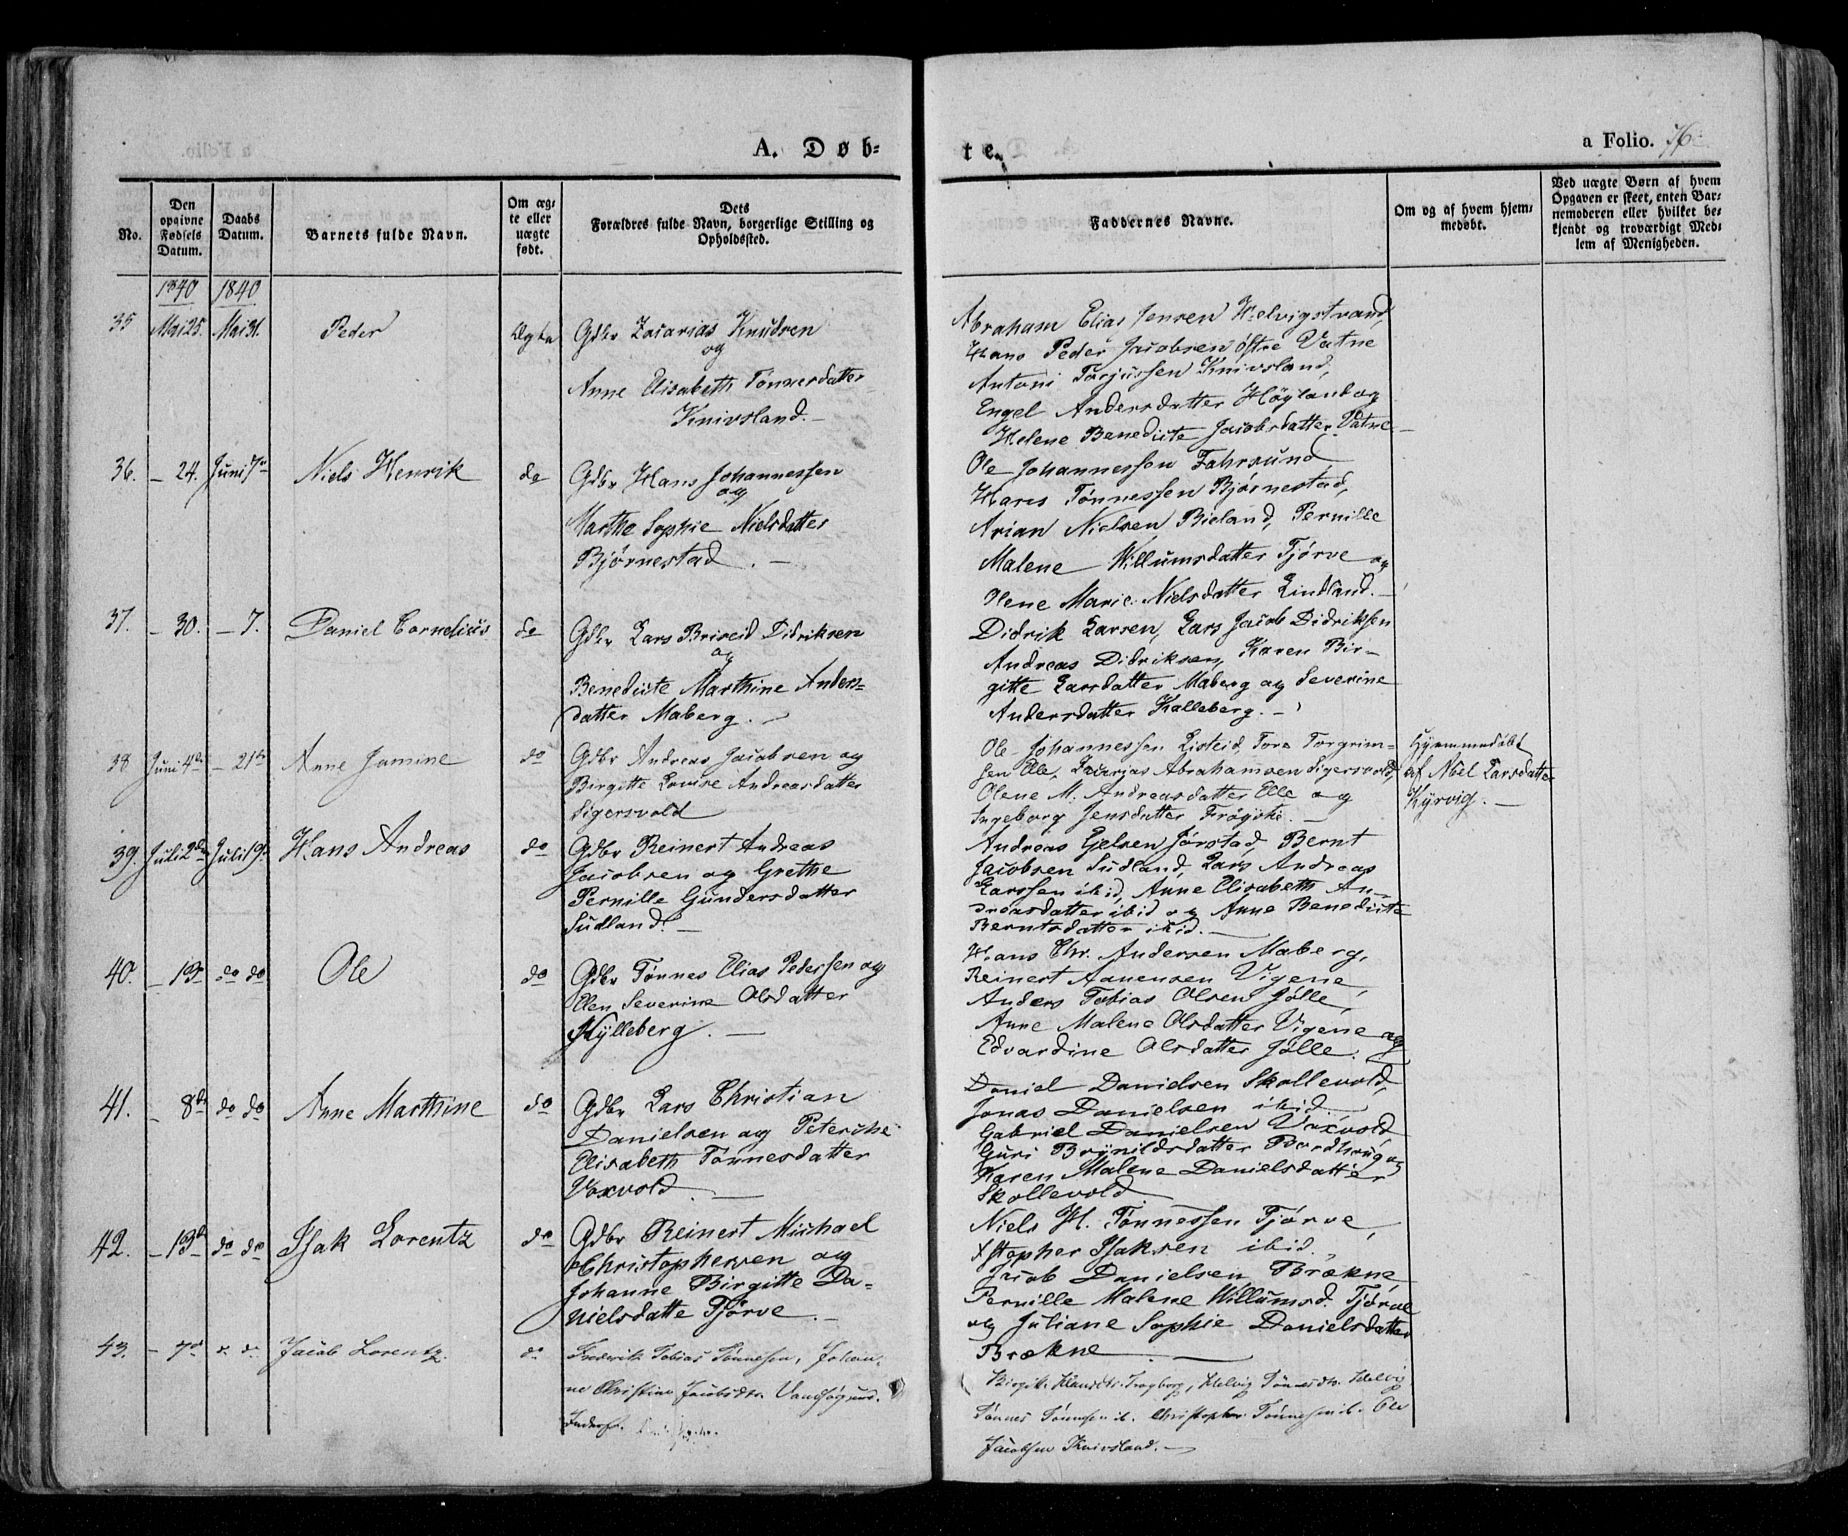 A. Døb-
te.
a Folio. 76
No.
Den opgivne Fødsels Datum.
Daabs Datum.
Barnets fulde Navn.
Om ægte eller uægte født.
Dets
Forældres fulde Navn, borgerlige Stilling og
Opholdssted.
Faddernes Navne.
Om og af hvem hjem-
medøbt.
Ved uægte Børn af hvem
Opgaven er skeet, enten Bar-
nemoderen eller hvilket be-
kjendt og troværdigt Med-
lem af Menigheden.
1840 1840
35 Mai 25. Mai 31. Peder Ægte
Gdbr Zacarias Knudsen
og
Anne Elisabeth Tønnesdatter
Knivsland. —
Abraham Elias Jensen Helvigstrand,
Hans Peder Jacobsen Østre Vatne
Antoni Torjussen Knivsland,
Engel Andersdatter Høyland og
Helene Benedicte Jacobsdatter Vatne —
36. — 24. Juni 7de Niels Henrik do
Gdbr Hans Johannessen
og
Marthe Sophie Nielsdatter
Bjørnestad. —
Ole Johannessen Fahrsund
Hans Tønnessen Bjørnestad,
Arian Nielsen Bieland, Pernille
Malene Willumsdatter Tjørve og
Olene Marie Nielsdatter Lindland. —
37. — 30. — 7. Daniel Cornelius do
Gdbr Lars Briseid Didriksen
og
Benedicte Marthine Anders-
datter Maberg. —
Didrik Larsen, Lars Jacob Didriksen
Andreas Didriksen, Karen Bir-
gitte Larsdatter Maberg og Severine
Andersdatter Kalleberg. —
38 Juni 4de — 21de Anne Jamine do
Gdbr Andreas Jacobsen og
Birgitte Lovise Andreasdatter
Sigersvold
Ole Johannessen Listeid, Tore Torgrim-
sen Elle, Zacarias Abrahamsen Sigersvold,
Olene M. Andreasdatter Elle og
Ingeborg Jensdatter . —
Hjemmedøbt
af Abel Larsdatter
Kyrvig. —
39. Juli 2de Juli 19. Hans Andreas do
Gdbr Reinert Andreas
Jacobsen og Grethe
Pernille Gundersdatter
Sudland. —
Andreas Jørstad, Bernt
Jacobsen Sudland, Lars Andreas
Larssen ibid, Anne Elisabeth An-
dreasdatter ibid og Anne Benedicte
Berntsdatter ibid. —
40. — 13 do do Ole do
Gdbr Tønnes Elias Pedersen og
Elen Severine Olsdatter
Hylleberg. —
Hans Chr. Andersen Maberg,
Reinert Aanensen Vigene,
Anders Tobias Olsen Jølle,
Anne Malene Olsdatter Vigene og
Edvardine Olsdatter Jølle.
41. — 8de do do Anne Marthine do
Gdbr Lars Christian
Danielsen og Petersche
Elisabeth Tønnesdatter
Voxvold. —
Daniel Danielsen Skollevold,
Jonas Danielsen ibid.
Gabriel Danielsen Voxvold
Guri Brynildsdatter Bordhaug og
Karen Malene Danielsdatter
Skollevold.
42. — 13de do do Isak Lorentz do
Gdbr Reinert Michael
Christophersen og
Johanne Birgitte Da-
nielsdatte Tjørve. —
Niels H. Tønnessen Tjørve,
Xstopher Isaksen ibid.,
Jacob Danielsen Brækne,
Pernille Malene Willumsd. Tjørve
og Juliane Sophie Danielsdatter
Brækne —
43. — 7de Jacob Lorentz. do
Frederik Tobias Tønnesen, Johan-
ne Christine Jacobsdtr.
Inderst.
Tønnes Tønnesen ib. Christopher Tønnesen ib. Ole
Jacobsen Knivsland. —